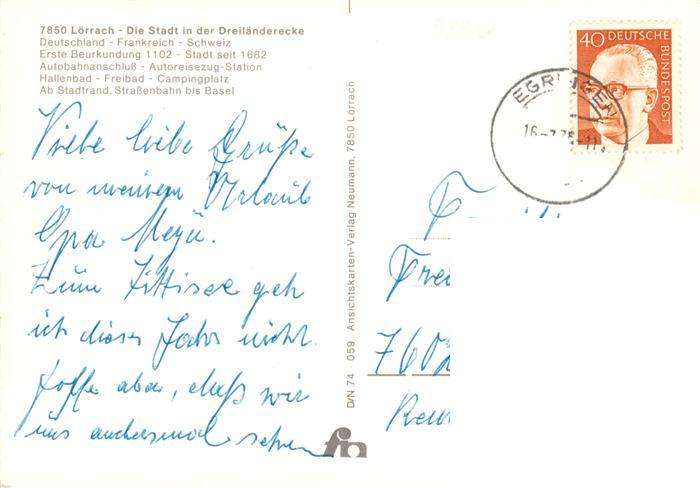 7850 Lörrach - Die Stadt in der Dreiländerecke
Deutschland - Frankreich - Schweiz
Erste Beurkundung 1102 - Stadt seit 1682
Autobahnanschluß - Autoreisezug-Station
Hallenbad - Freibad - Campingplatz
Ab Stadtrand, Straßenbahn bis Basel
Viele liebe Grüße
von meinem Urlaub
Opa
Zum Tittisee geh
ich dieses Jahr nicht
hoffe aber, daß wir
uns andersmal sehen
D/N 74 059 Ansichtskarten-Verlag Neumann, 7850 Lörrach
40 DEUTSCHE
BUNDESPOST
EGRINGEN